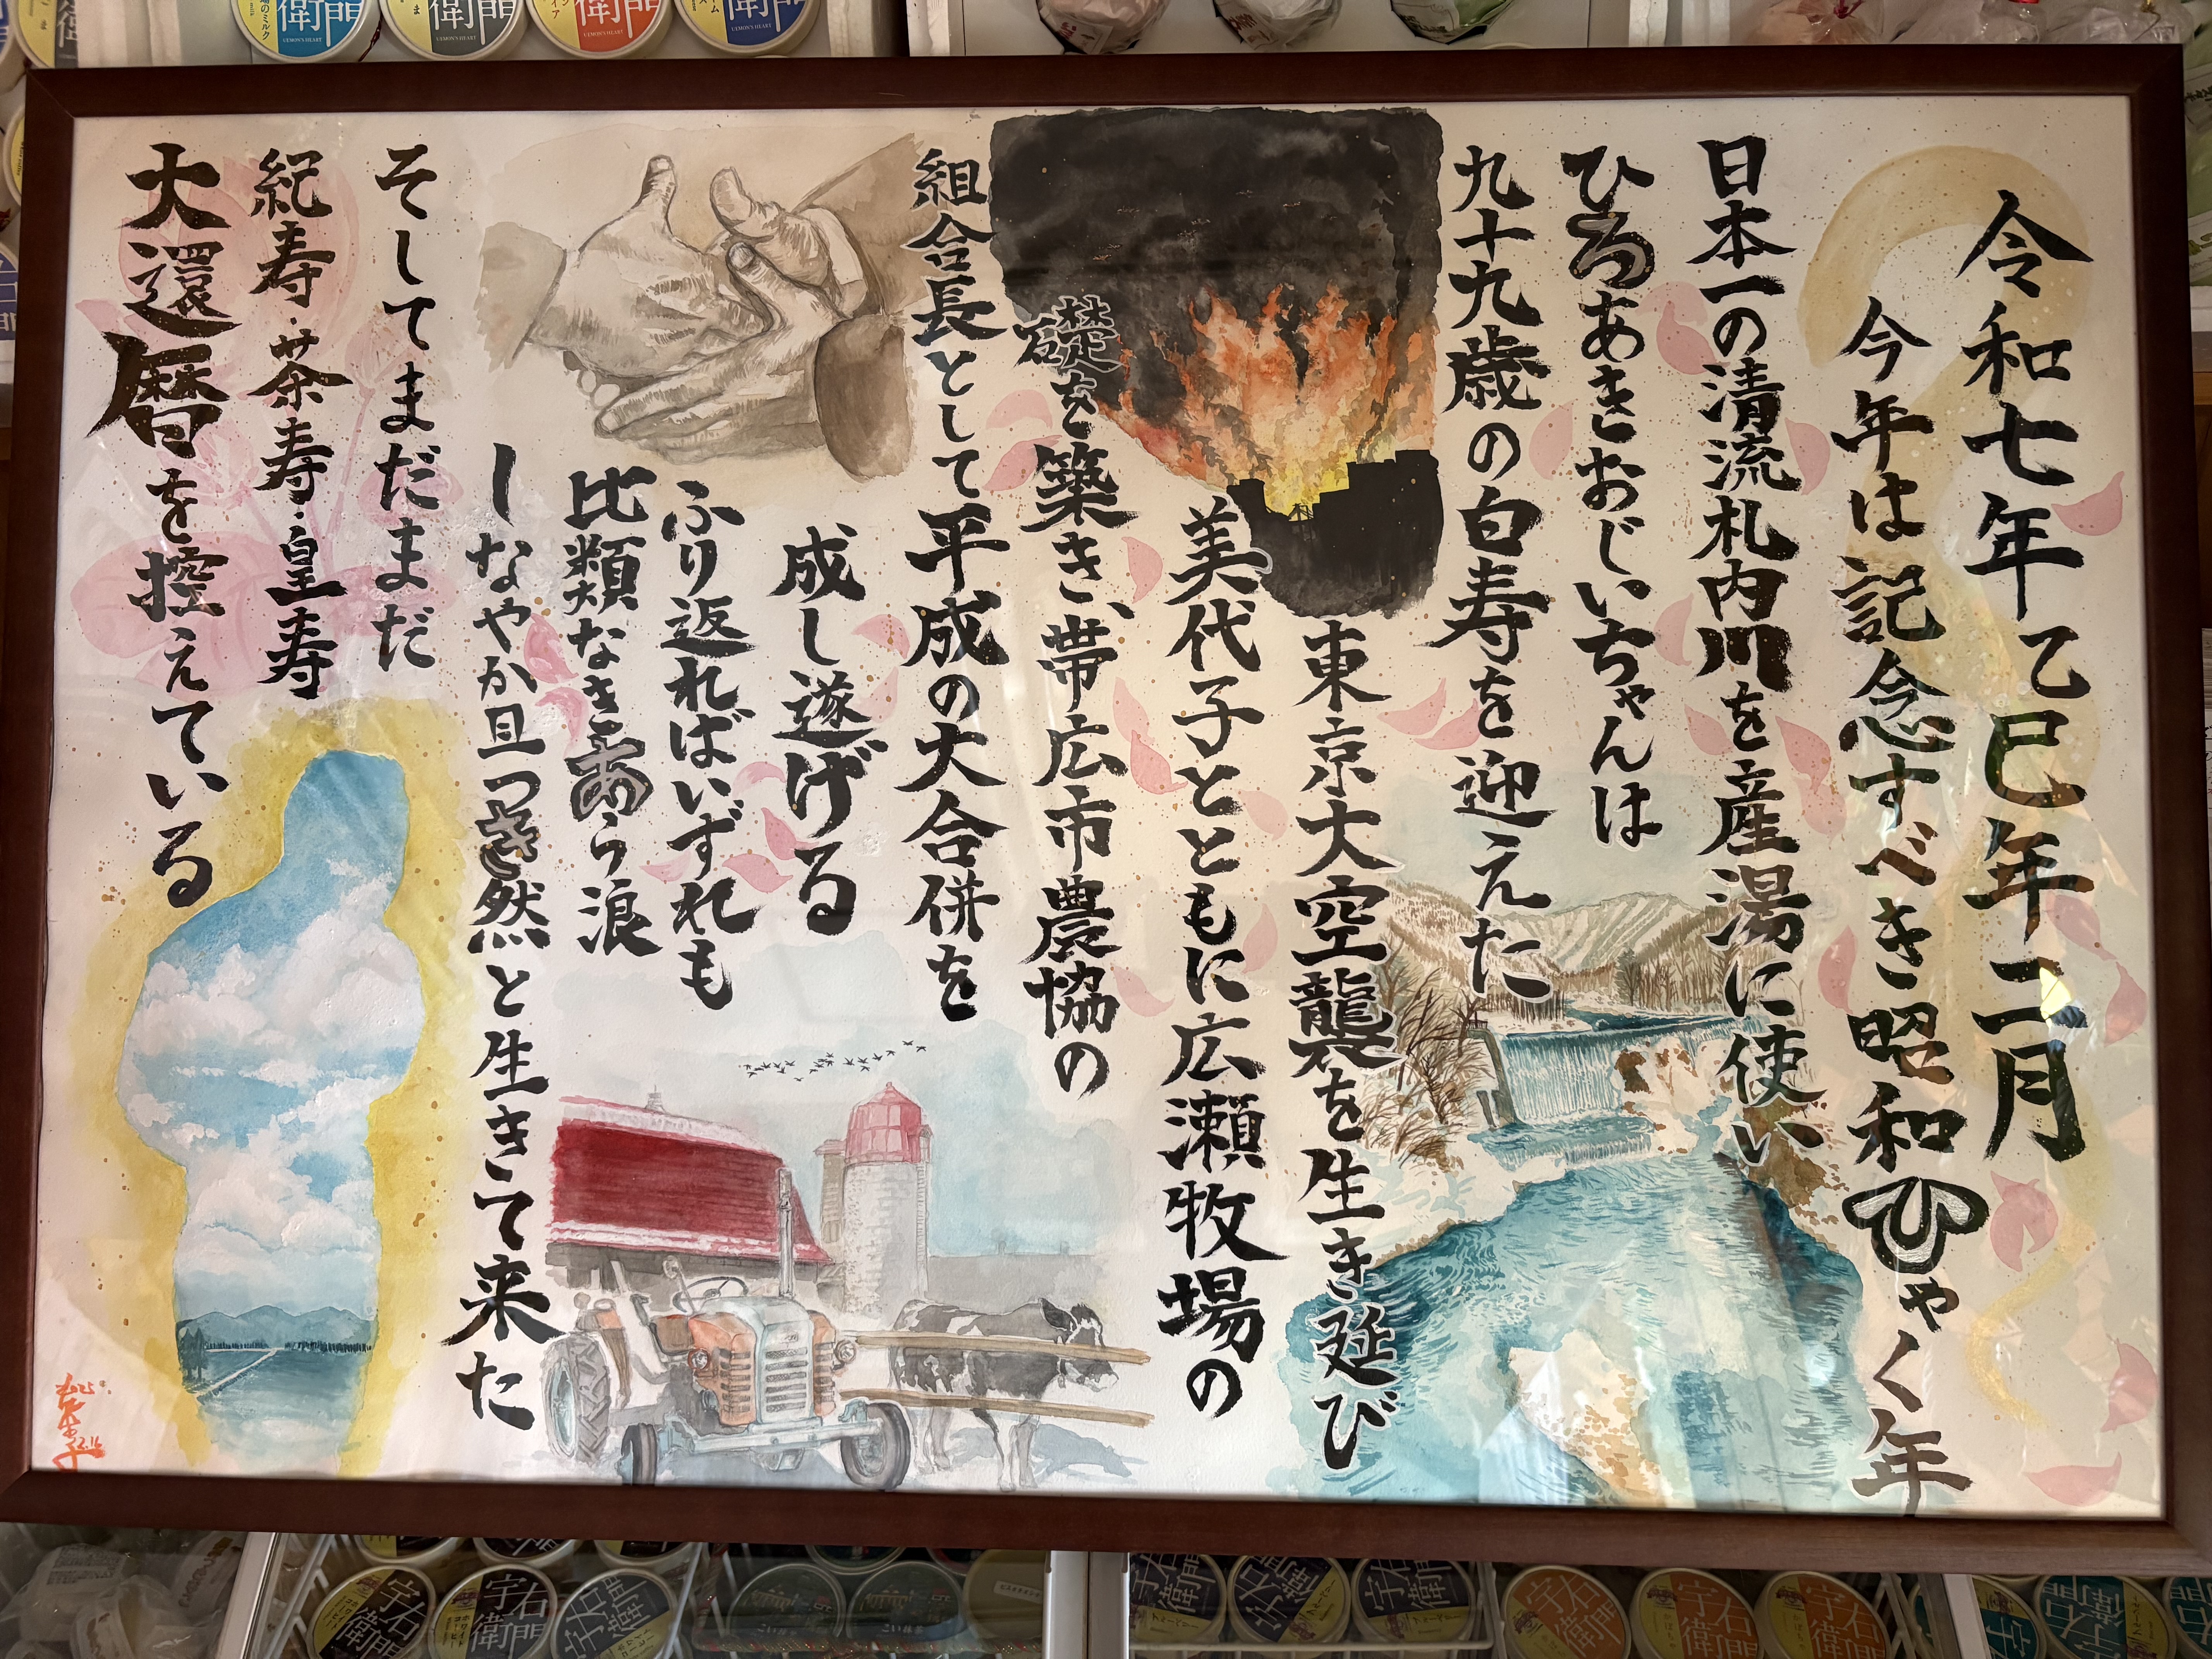 令和七年乙巳年二月
今年は記念すべき昭和ひゃく年
日本一の清流札内川を産湯に使い
ひろあきおじいちゃんは
九十九歳の白寿を迎えた
東京大空襲を生き延び
美代子とともに広瀬牧場の
礎を築き、帯広市農協の
組合長として平成の大合併を
成し遂げる
ふり返ればいずれも
比類なきあら浪
しなやか且つき然と生きて来た
そしてまだまだ
紀寿・茶寿・皇寿
大還暦を控えている
宇右衛門
UEMON'S HEART